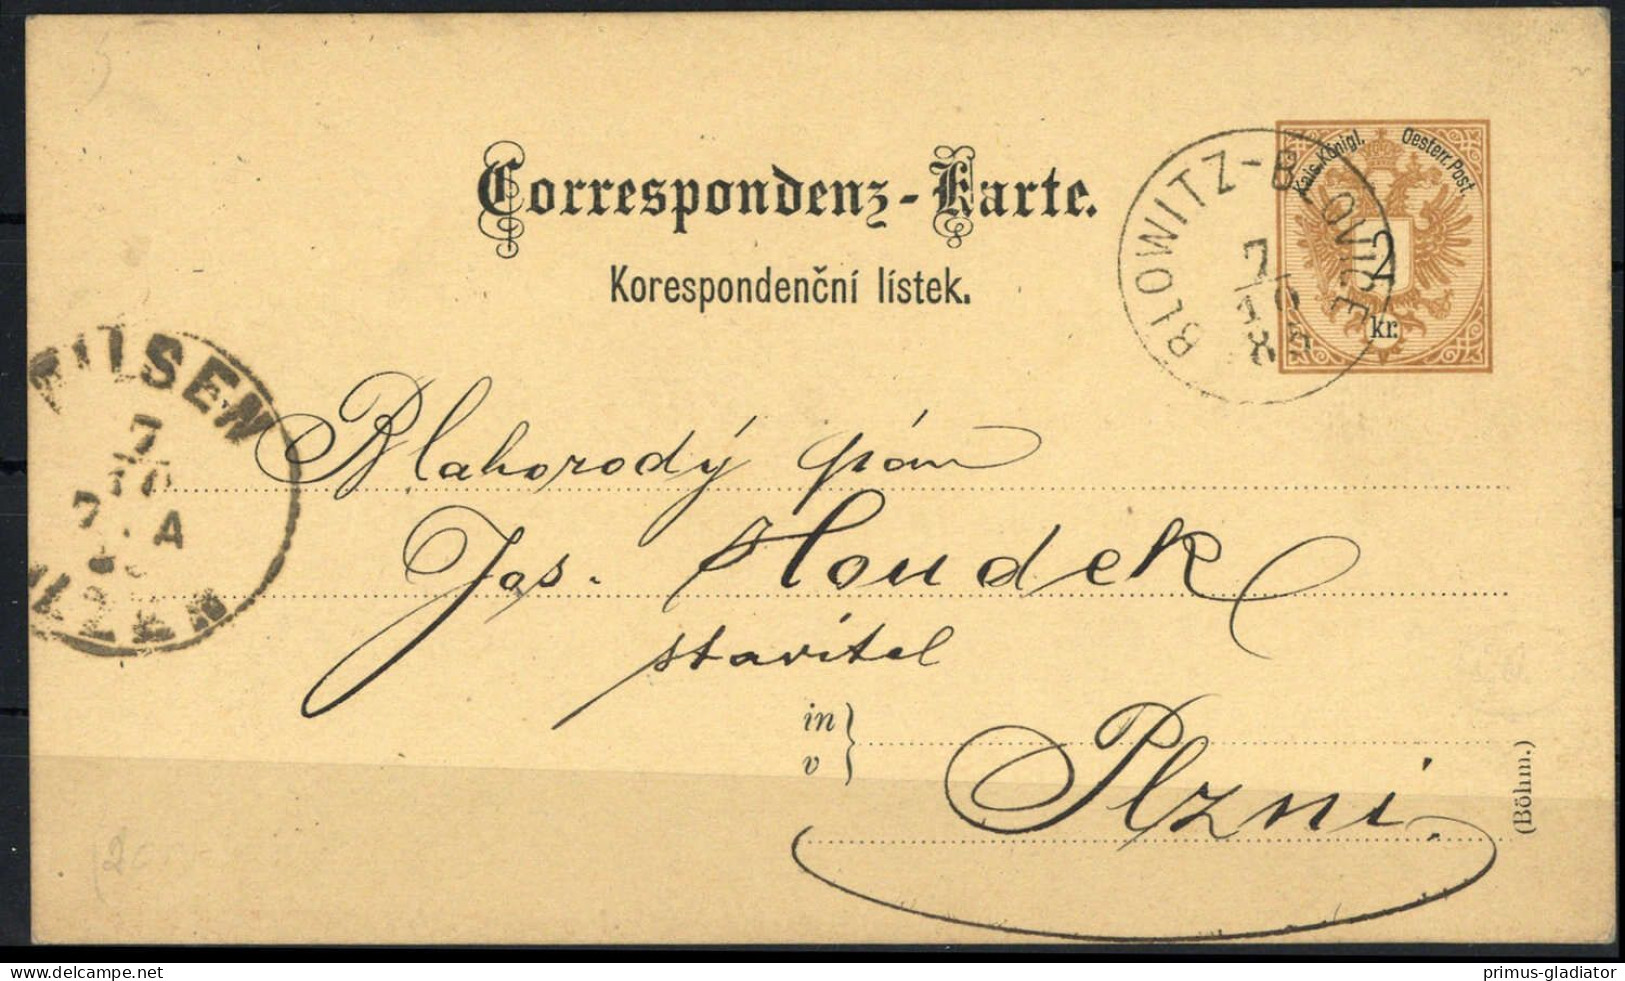 Correspondenz-Karte.
Korespondenční lístek.
Kais. Königl. Oesterr. Post.
2
kr.
BLOWITZ-BLOVICE
7
10
PILSEN
7
10
7 A
PLZEŇ
Blahorodý pán
Jos. Houdek
stavitel
in
v
Plzni.
(Böhm.)
www.delcampe.net
primus-gladiator